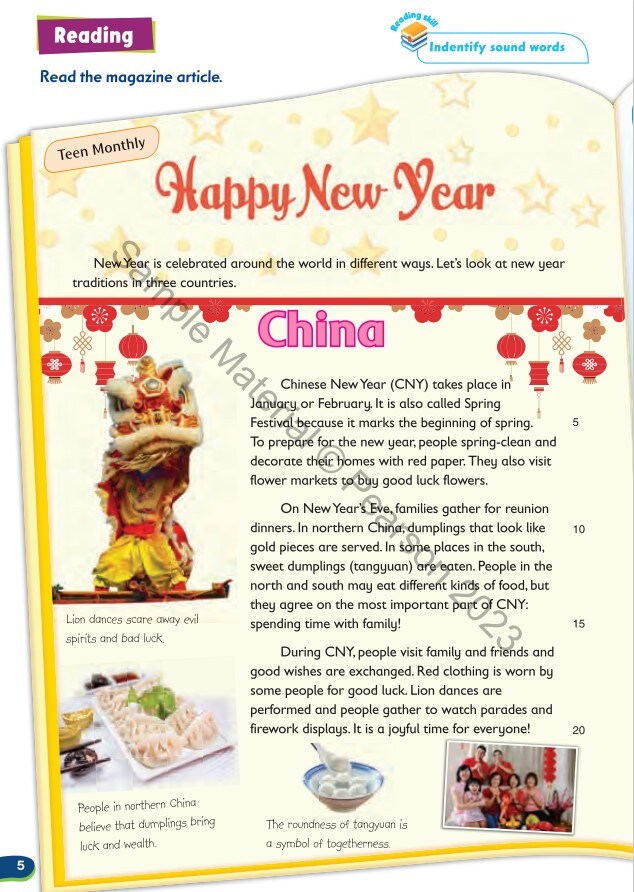 Reading
Reading skill
Indentify sound words
Read the magazine article.
Teen Monthly
Happy New Year
New Year is celebrated around the world in different ways. Let's look at new year
traditions in three countries.
China
Chinese New Year (CNY) takes place in
January or February. It is also called Spring
Festival because it marks the beginning of spring. 5
To prepare for the new year, people spring-clean and
decorate their homes with red paper. They also visit
flower markets to buy good luck flowers.
On New Year's Eve, families gather for reunion
dinners. In northern China, dumplings that look like 10
gold pieces are served. In some places in the south,
sweet dumplings (tangyuan) are eaten. People in the
north and south may eat different kinds of food, but
they agree on the most important part of CNY:
spending time with family! 15
During CNY, people visit family and friends and
good wishes are exchanged. Red clothing is worn by
some people for good luck. Lion dances are
performed and people gather to watch parades and
firework displays. It is a joyful time for everyone! 20
Lion dances scare away evil
spirits and bad luck.
People in northern China
believe that dumplings bring
luck and wealth.
The roundness of tangyuan is
a symbol of togetherness.
Sample Material © Pearson 2023
5